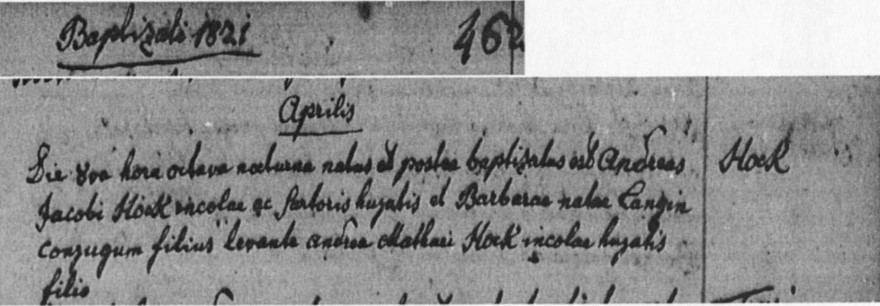 Baptizati 1821
462
Aprilis
Die 8va hora octava nocturna natus et postea baptizatus est Andreas
Hock
Jacobi Höck incolae ac Sartoris hujatis et Barbarae natae Langin
conjugum filius levante Andrea Mathaei Hock incolae hujatis
filio